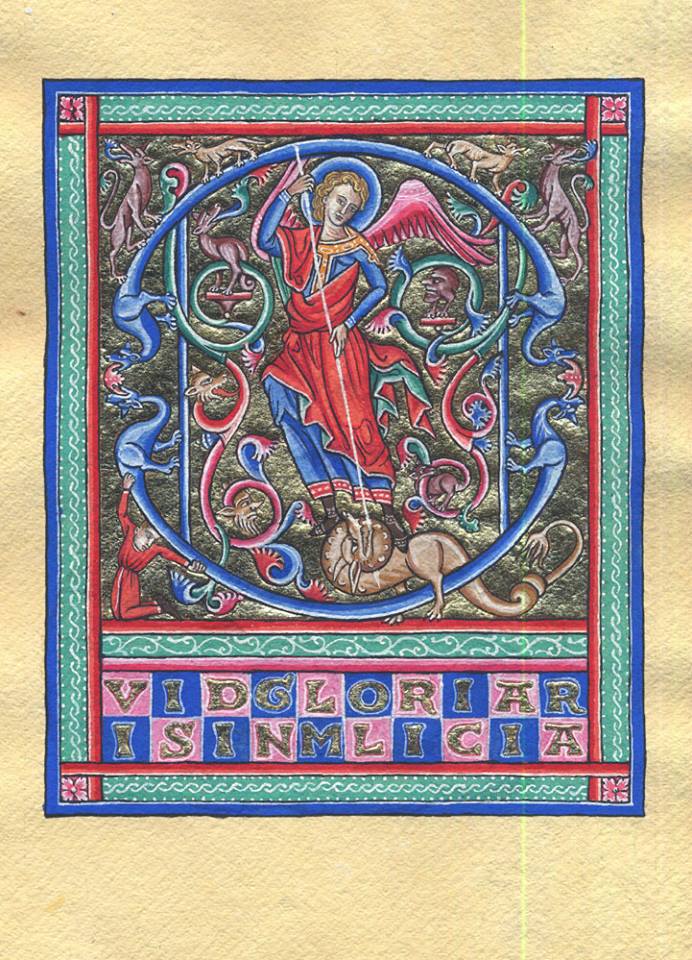 Q
VIDGLORIAR
ISINMLICIA